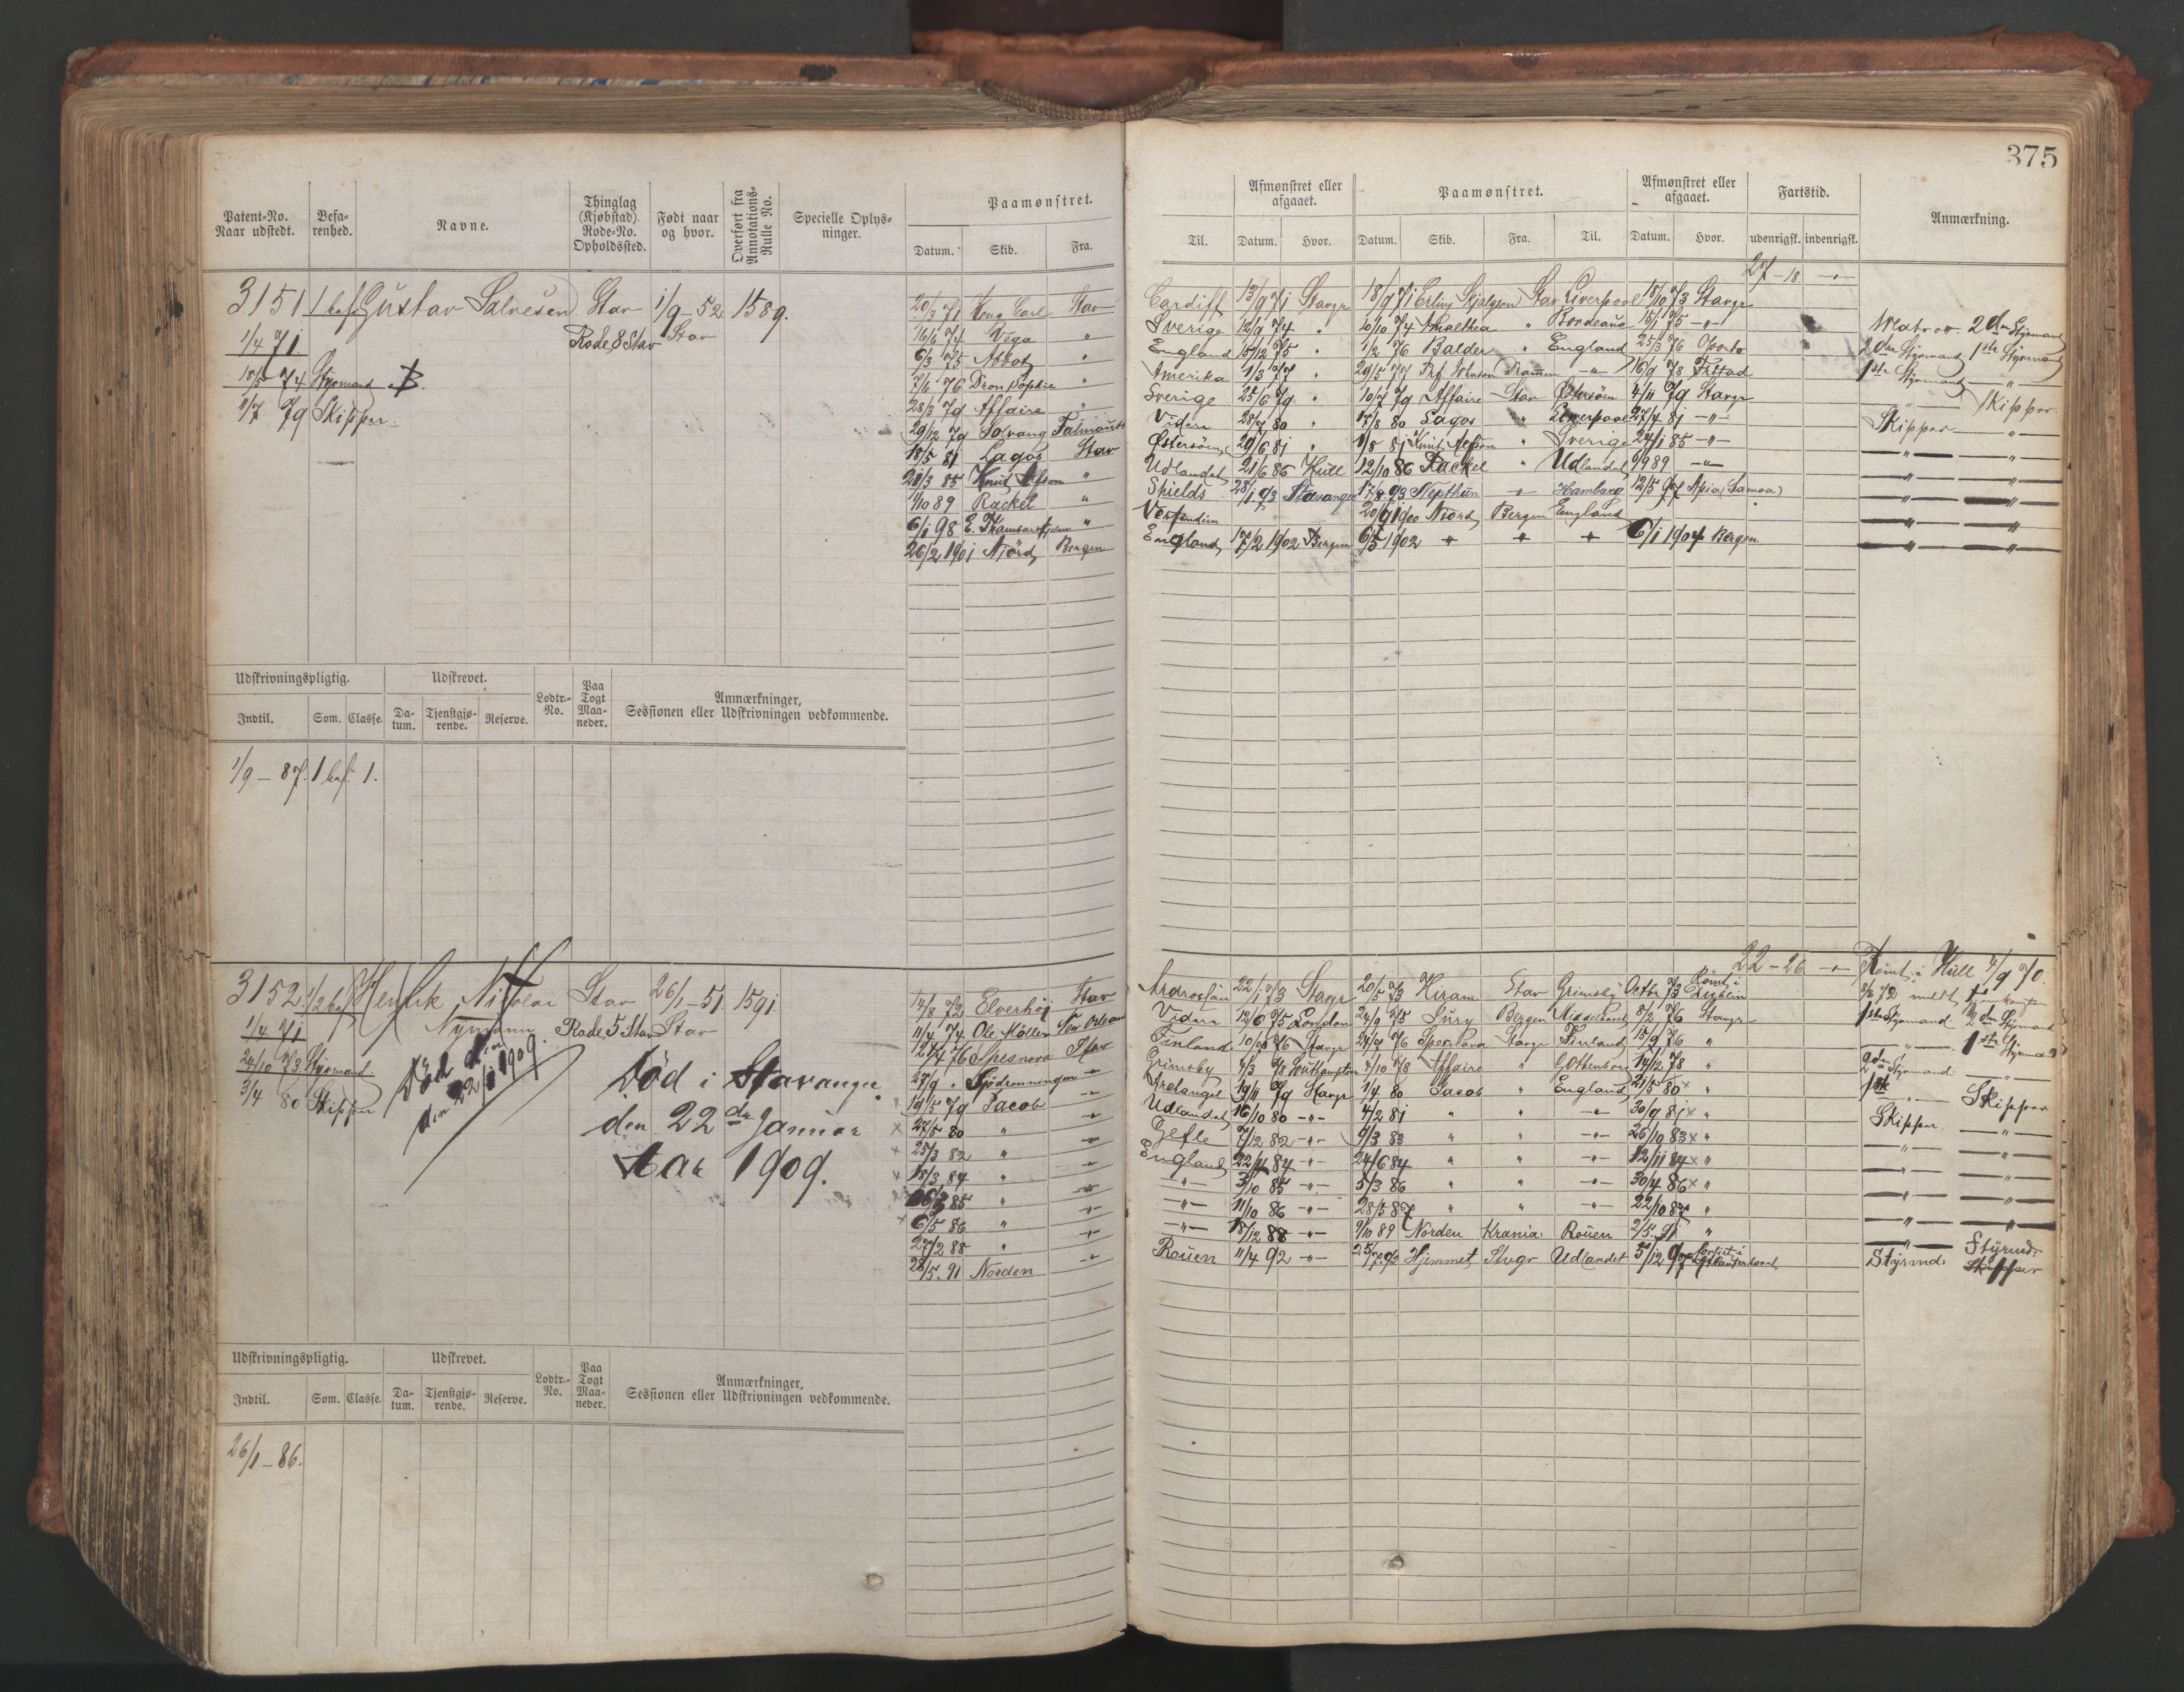 375
Patent-No. Naar udstedt. Befa-renhed. Navne. Thinglag (Kjøbstad) Rode-No. Opholdssted. Født naar og hvor. Overført fra Annotations-Rulle No. Specielle Oplys-ninger. Paamønstret. Datum. Skib. Fra.
Til. Afmønstret eller afgaaet. Datum. Hvor. Paamønstret. Datum. Skib. Fra. Til. Afmønstret eller afgaaet. Datum. Hvor. Fartstid. udenrigsk. indenrigsk. Anmærkning.
27-18 -"-
3151 1 bef Gustav Salvesen Stav 1/9-52 1589.
1/4 71 Rode 8 Stav Stav
18/5 74 Styrmand B.
11/7 79 Skipper.
20/3 71 Kong Carl Stav Cardiff 13/9 71 Stavgr 18/9 71 Erling Skjalgson Stav Liverpool 18/10 73 Stavgr
16/6 74 Vega " Sverige 12/9 74 " 10/10 74 Amalthea " Bordeaux 15/1 75 -"- Matros. 2den Styrmand
6/3 75 Abbot " England 15/12 75 " 1/2 76 Balder " England 25/3 76 Oporto 2den Styrmand 1ste Styrmand
7/6 76 Dron Sophie " Amerika 1/3 77 " 29/5 77 Prf Johnson Drammen -"- 16/9 78 1ste Styrmand -"-
28/3 79 Affaire " Sverige 25/6 79 " 10/7 79 Affaire Stav Østersöen 4/11 79 Stavgr -"- Skipper
29/12 79 Solvang Falmouth Videre 28/7 80 " 17/8 80 Lagos " Liverpool 27/4 81 -"- Skipper -"-
18/5 81 Lagos Stav Østersöen 29/6 81 " 1/8 81 Knut " Sverige 24/1 85 -"- -"- -"-
21/3 85 Knud " Udlandet 21/6 86 Hull 12/10 86 Rackel " Udlandet 6/9 89 -"- -"- -"-
1/10 89 Rackel " Shields 28/1 93 Stavanger 17/8 93 Nepthun -"- Hamburg 12/5 97 Apia (Samoa) -"- -"-
6/1 98 E. " Vestindien 20/9 1900 Njörd Bergen England -"- -"-
26/2 1901 Njörd Bergen England 17/2 1902 Bergen 6/5 1902 " " " 6/1 1904 Bergen -"- -"-
Udskrivningspligtig. Udskrevet. Lodtr.-No. Paa Togt Maa-neder. Anmærkninger, Sessionen eller Udskrivningen vedkommende.
Indtil. Som. Classe. Da-tum. Tjenstgjø-rende. Reserve.
1/9-87. 1 bef. 1.
22-26 -"- Römt i Hull 4/9 70.
3152 1/2 bef Henrik Nikolai Stav 26/1-51 1591.
1/4 71 Nymann Rode 5 Stav Stav
24/10 73 Styrmand
3/4 80 Skipper
Död den 22/1 1909.
Död i Stavanger
den 22de Januar
Aar 1909.
14/8 72 Elverhöi Stav 22/1 73 Stavgr 20/5 73 Hiram Stav Grimsby Octbr 73 Römt i Dublin
11/4 74 Ole Möller New Orleans Videre 12/6 75 London 24/9 75 Jury Bergen 8/2 76 Stavgr 1ste Styrmand 2den Styrmand
12/4 76 Spesnova Stav Finland 10/7 76 Stavgr 24/7 76 Spesnova Stavgr Finland 15/9 76 " -"- 1ste Styrmand
27/9 " Sjödronningen -"- Grimsby 4/3 78 Southampton 4/10 78 Affaire " Gothenborg 14/12 78 " 2den Styrmand -"-
19/5 79 Jacob -"- Archangel 19/11 79 Stavgr 1/4 80 Jacob " England 21/5 80 x " 1ste -"- Skipper
27/5 80 " -"- Udlandet 16/10 80 -"- 4/2 81 " " -"- 30/9 81 x " Skipper -"-
25/3 82 " -"- Gefle 7/12 82 -"- 9/3 83 " " -"- 26/10 83 x " -"- -"-
18/3 84 " -"- England 22/4 84 -"- 24/6 84 " " -"- 12/11 84 x " -"- -"-
85 " -"- -"- 3/10 85 -"- 5/3 86 " " -"- 30/4 86 x " -"- -"-
6/5 86 " -"- -"- 11/10 86 -"- 28/3 87 " " -"- 22/10 87 " -"- -"-
27/2 88 " -"- -"- 18/12 88 -"- 9/10 89 Norden Krania: Rouen 2/5 91 " -"- Styrmd:
28/5 91 Norden -"- Rouen 11/4 92 -"- 25/7 92 Hjemmet Stvgr Udlandet 5/12 97 forlist i Styrmd: Skipper
Udskrivningspligtig. Udskrevet. Lodtr.-No. Paa Togt Maa-neder. Anmærkninger, Sessionen eller Udskrivningen vedkommende.
Indtil. Som. Classe. Da-tum. Tjenstgjø-rende. Reserve.
26/1-86.